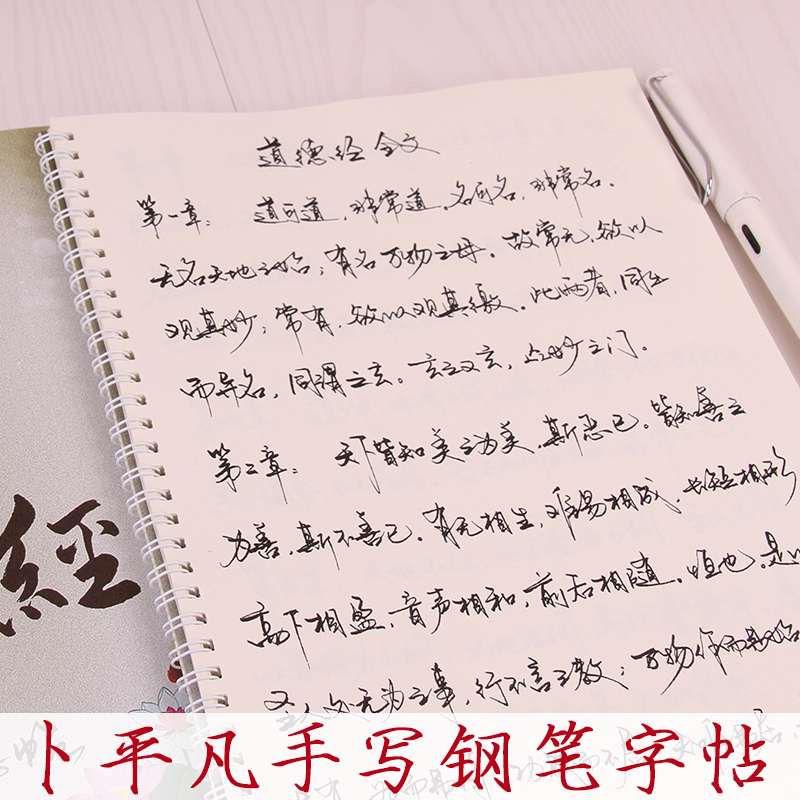 道德经全文
第一章：道可道，非常道。名可名，非常名。
无名天地之始；有名万物之母。故常无，欲以
观其妙；常有，欲以观其徼。此两者，同出
而异名，同谓之玄。玄之又玄，众妙之门。
第二章：天下皆知美之为美，斯恶已。皆知善之
为善，斯不善已。有无相生，难易相成，长短相形
高下相盈，音声相和，前后相随。恒也。是以
圣人处无为之事，行不言之教；万物作而弗始
經
卜平凡手写钢笔字帖